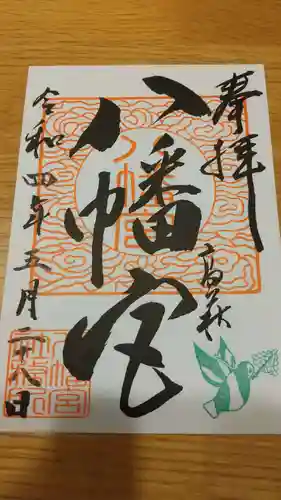 奉拝
高萩
八幡宮
令和四年五月二十八日
八幡宮